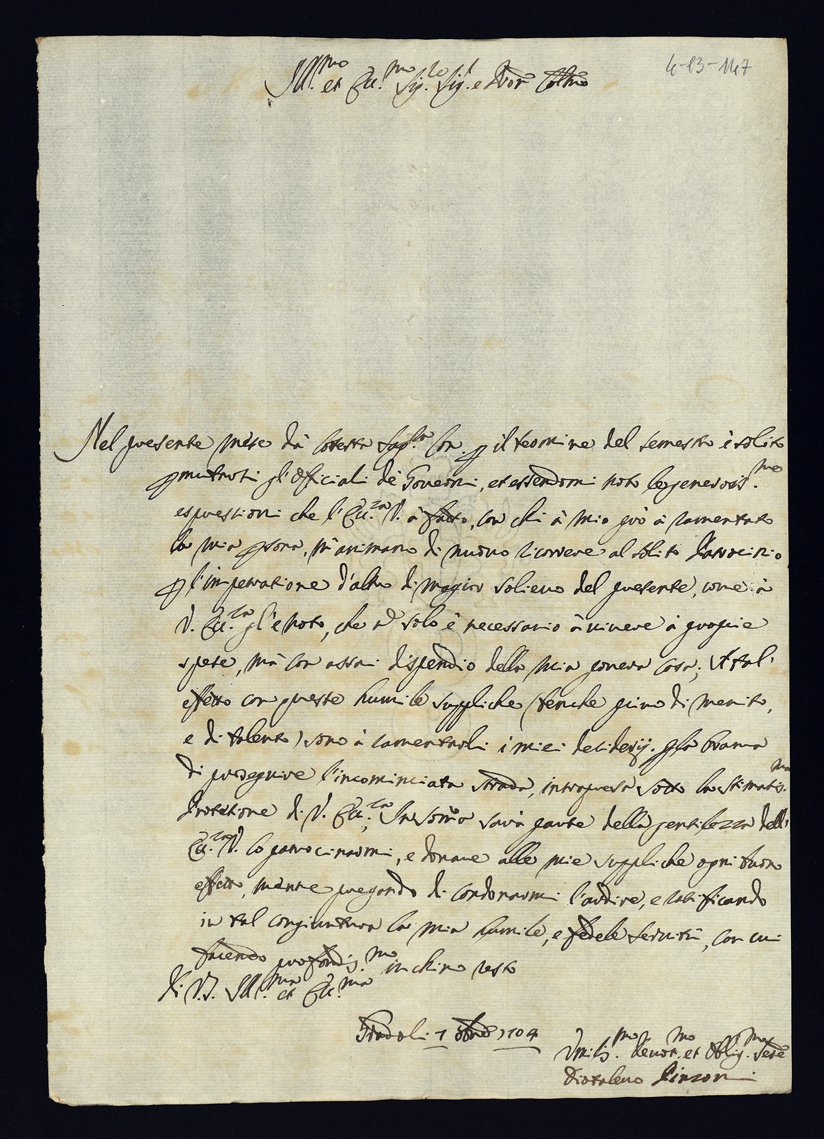 4-13-147
Ill.mo et Ecc.mo Sig.re Sig.r e Pron Col.mo
Nel presente mese da cotesta Sup.ma Con. p il termine del semestre è solito
pmutarsi gl'Officiali de Governi, et essendomi noto le generosis.me
espressioni che l'Ecc.za V. à fatto, con chi à mio prò à ramentato
la mia psona, m'animano di nuovo ricorrere al solito Patrocinio
p l'impetratione d'altro di magior solievo del presente, come à
V. Ecc.za gl'è noto, che nō solo è necessario à vivere à proprie
spese, mà con assai dispendio della mia povera Casa; A tal'
effetto con queste humile suppliche (benche privo di merito,
e di talento) sono à ramentarli i miei desiderij. p la brama
di proseguire l'incominciata strada, intrapresa sotto la stimatis.ma
Protetione di V. Ecc.za; In somō sarà parte della gentilezza dell'
Ecc.za V. lo patrocinarmi, e donare alle mie suppliche ogni buon
effetto, mentre pregando di condonarmi l'ardire, e ratificando
in tal congiuntura la mia humile, e fedele servitù, con cui
facendo profondis.mo inchino resto
di V.S. Ill.ma et Ecc.ma
Gradoli 7 1704
Umilis.mo devot.mo et Oblig.mo Serre
Diotalevo Pinzoni